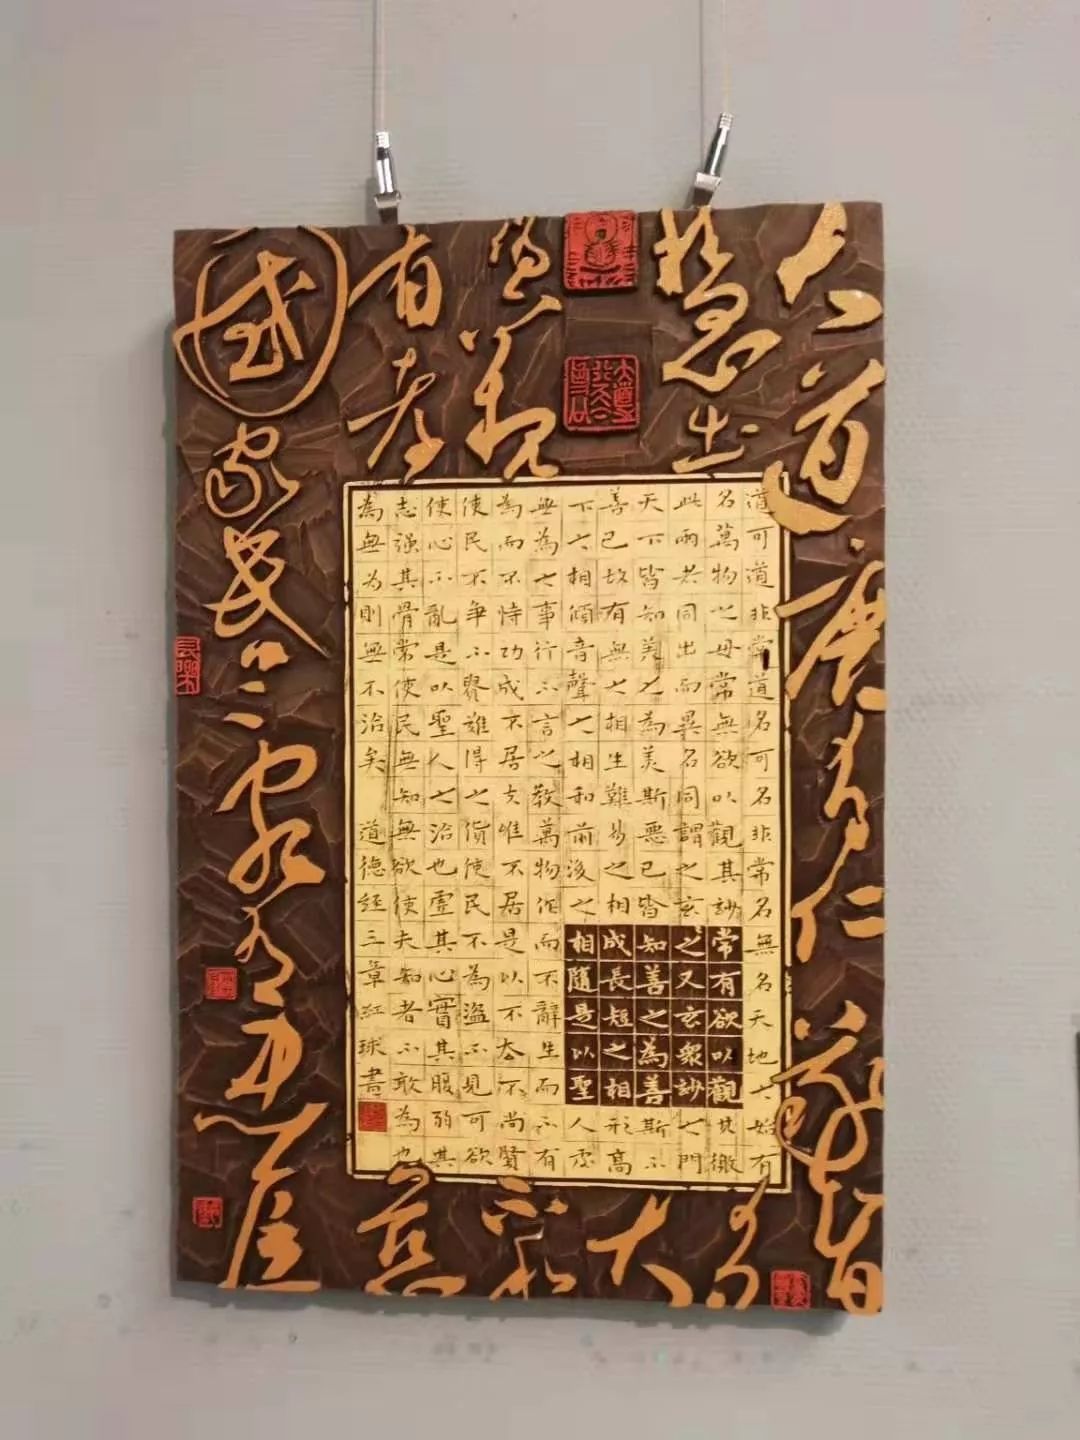 大道廢有仁義智
慧出有
大
偽親不和
有孝慈
國家昏亂有忠臣
道可道非常道名可名非常名無名天地之始有
名萬物之母常無欲以觀其玅常有欲以觀其徼
此兩者同出而異名同謂之玄之又玄眾玅之門
天下皆知美之為美斯惡已皆知善之為善斯不
善已故有無之相生難易之相成長短之相形高
下之相傾音聲之相和前後之相隨是以聖人處
無為之事行不言之教萬物作而不辭生而不有
為而不恃功成不居夫惟不居是以不去不尚賢
使民不爭不貴難得之貨使民不為盜不見可欲
使心不亂是以聖人之治也虛其心實其腹弱其
志強其骨常使民無知無欲使夫知者不敢為也
為無為則無不治矣 道德經三章紅球書